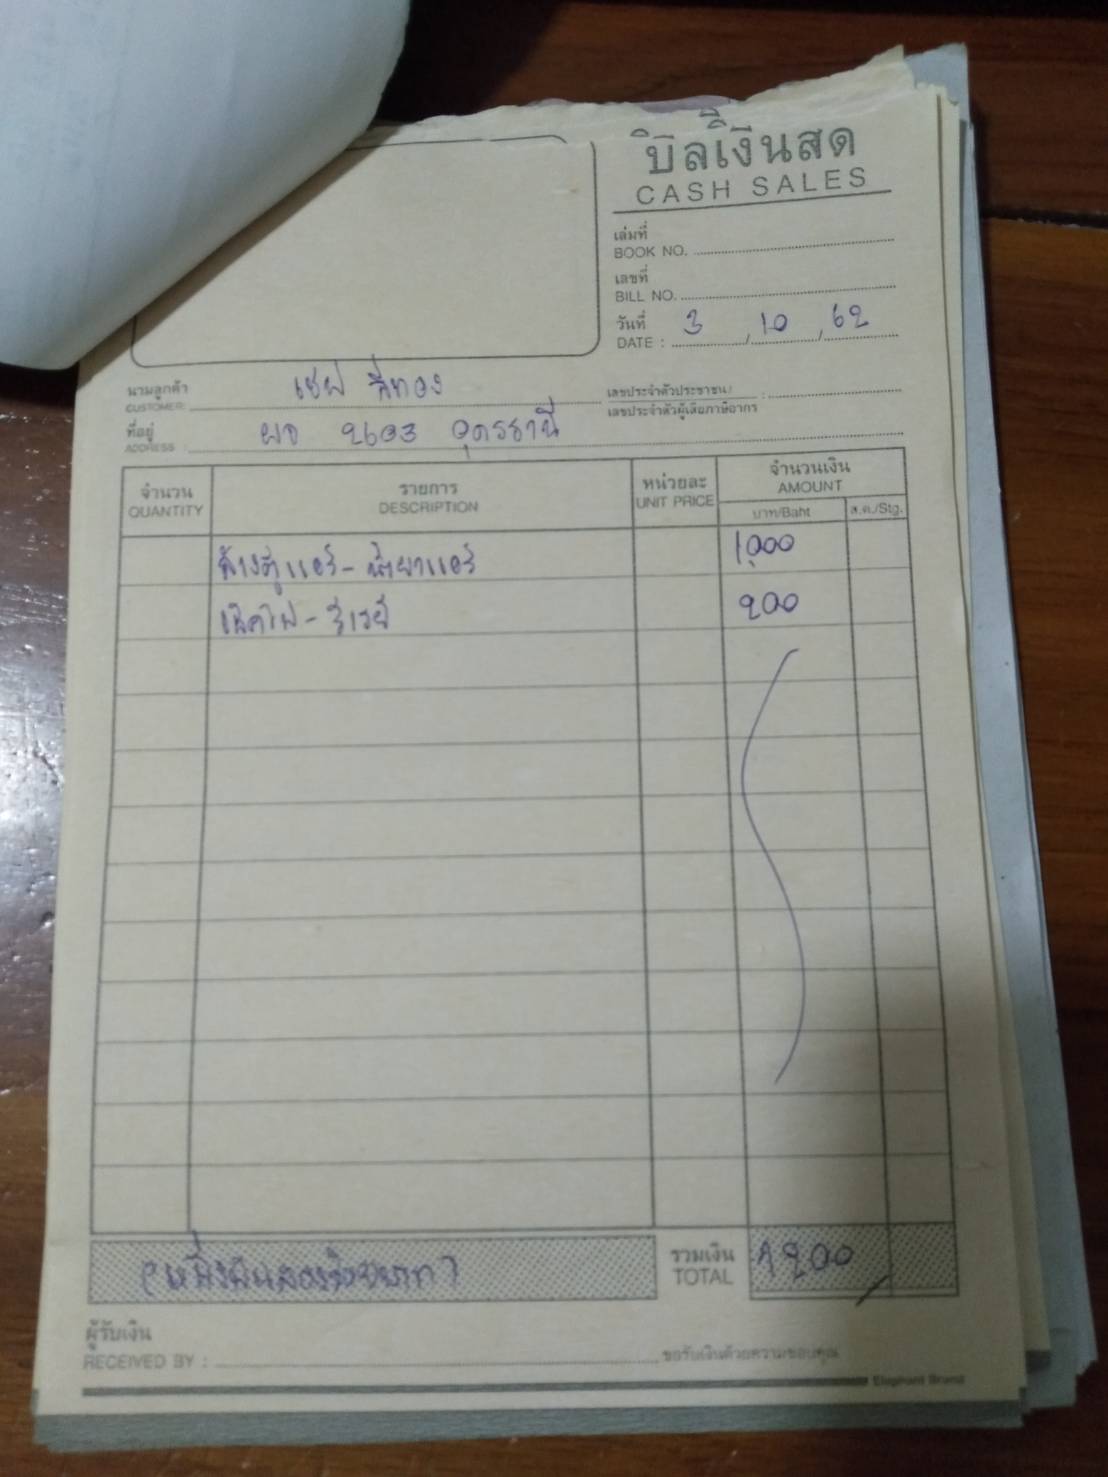 บิลเงินสด
CASH SALES
เล่มที่
BOOK NO.
เลขที่
BILL NO.
วันที่ 3 10 62
DATE : / /
นามลูกค้า เชฟ สีทอง
CUSTOMER:
เลขประจำตัวประชาชน/ :
เลขประจำตัวผู้เสียภาษีอากร
ที่อยู่ ผจ 2603 อุดรธานี
ADDRESS :
จำนวน รายการ หน่วยละ จำนวนเงิน
QUANTITY DESCRIPTION UNIT PRICE AMOUNT
บาท/Baht ส.ต./Stg.
ล้างตู้แอร์ - น้ำยาแอร์ 1,000
เช็คไฟ - รีเรย์ 200
(หนึ่งพันสองร้อยบาท) รวมเงิน 1200
TOTAL
ผู้รับเงิน
RECEIVED BY : ขอรับเงินด้วยความขอบคุณ
Elephant Brand